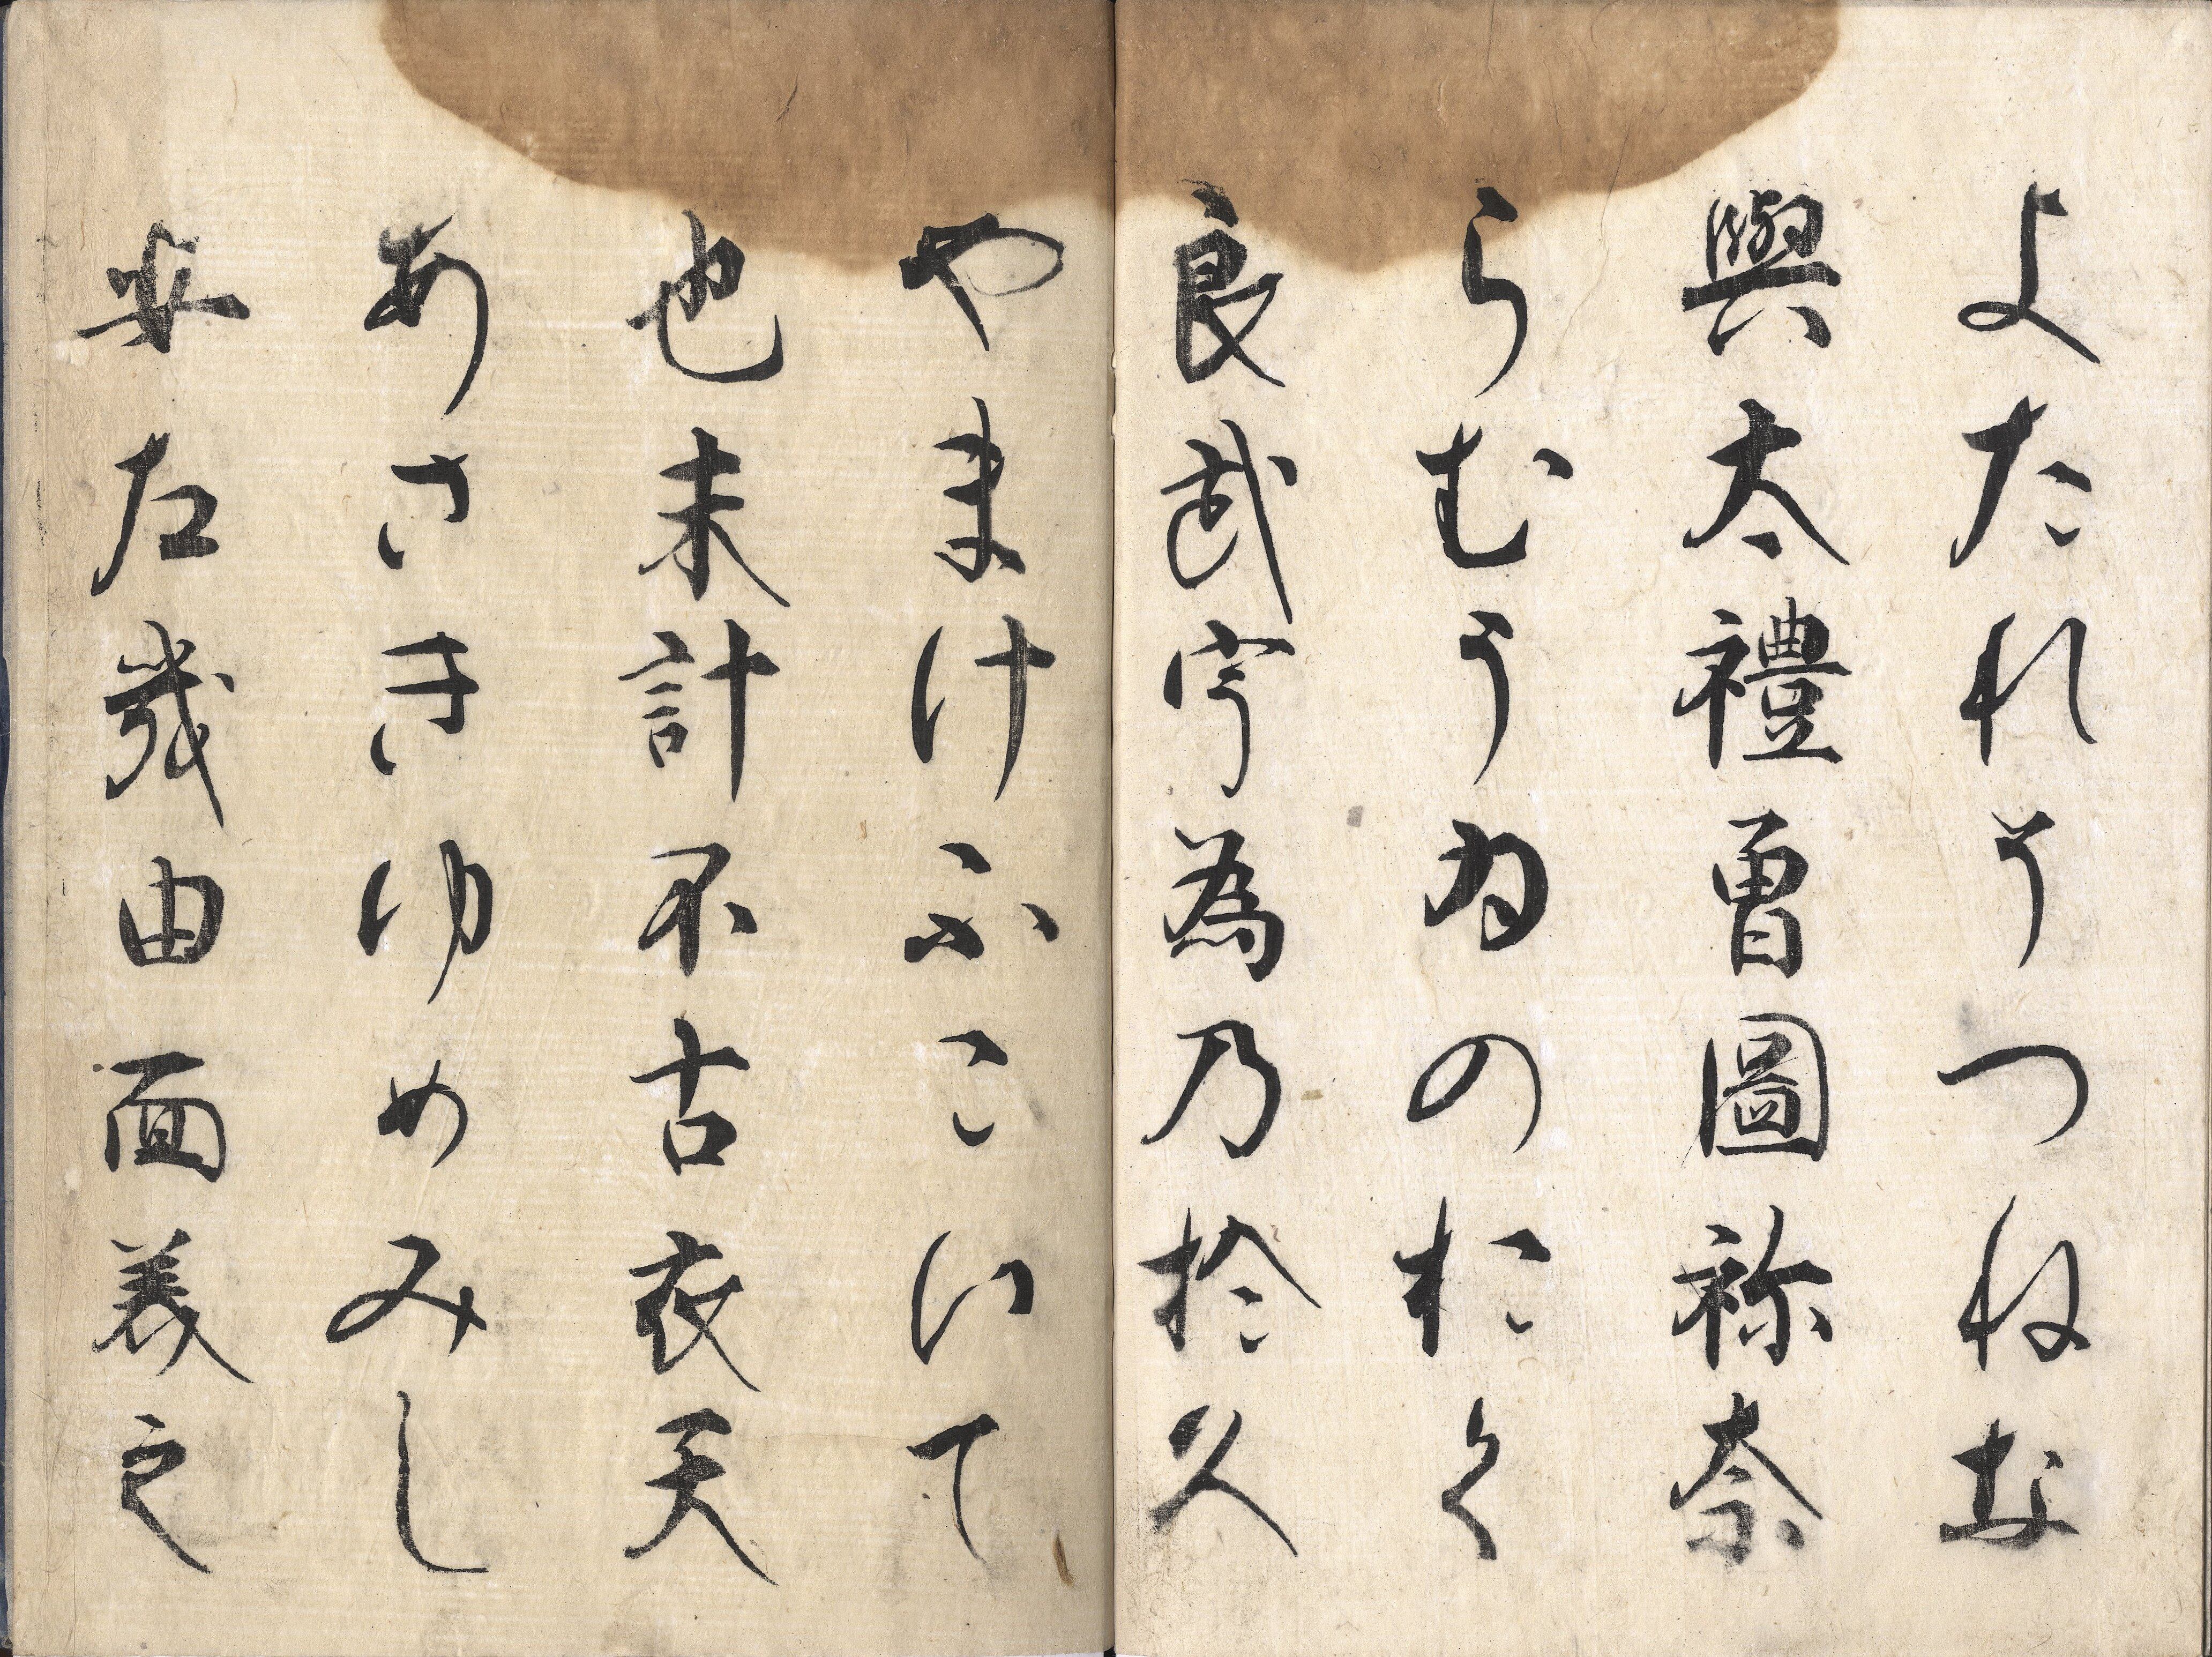 よたれそつねな
與太禮曽圖祢奈
らむうゐのおく
良武宇為乃於久
やまけふこいて
也末計不古衣天
あさきゆめみし
安左幾由面美之